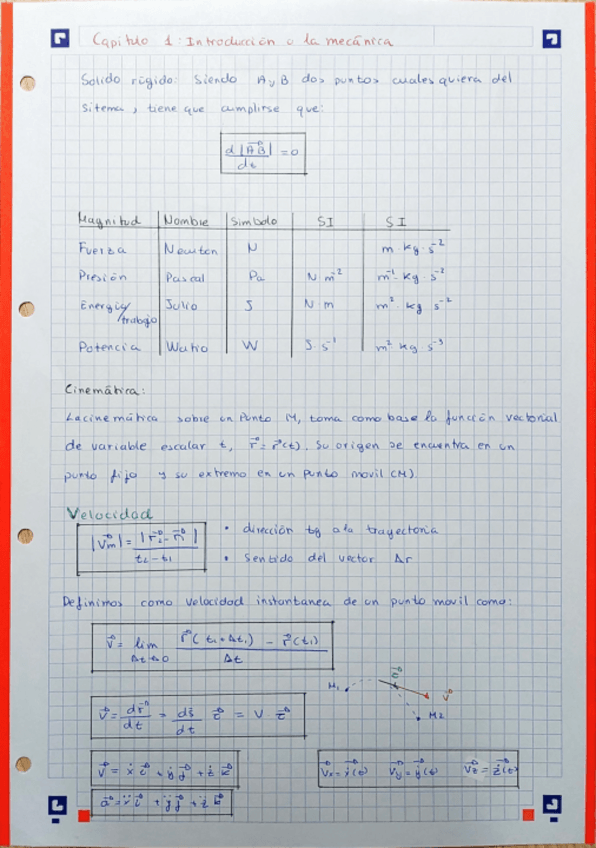 Capitulo 1: Introducción a la mecánica
Solido rígido: Siendo A y B dos puntos cuales quiera del
Sitema, tiene que cumplirse que:
d|AB⃗|/dt = 0
Magnitud | Nombre | Simbolo | SI | SI
Fuerza | Newton | N | | m · kg · s⁻²
Presión | Pascal | Pa | N m⁻² | m⁻¹ · kg · s⁻²
Energía/trabajo | Julio | J | N m | m² · kg s⁻²
Potencia | Watio | W | J · s⁻¹ | m² kg s⁻³
Cinemática:
La cinemática sobre un Punto M, toma como base la función vectorial
de variable escalar t, r⃗ = r⃗(t). Su origen se encuentra en un
punto fijo y su extremo en un punto movil (M).
Velocidad
|Vm⃗| = |r₂⃗ - r₁⃗| / t₂ - t₁
• dirección tg a la trayectoria
• Sentido del vector Δr
Definimos como velocidad instantanea de un punto movil como:
v⃗ = lim Δt→0 r⃗(t₁+Δt₁) - r⃗(t₁) / Δt
M₁
v⃗
M2
v⃗ = dr⃗/dt = ds⃗/dt τ⃗ = V · τ⃗
v⃗ = ẋ i⃗ + ẏ j⃗ + ż k⃗
Vx = ẋ(t) Vy = ẏ(t) Vz = ż(t)
a⃗ = ẍ i⃗ + ÿ j⃗ + z̈ k⃗